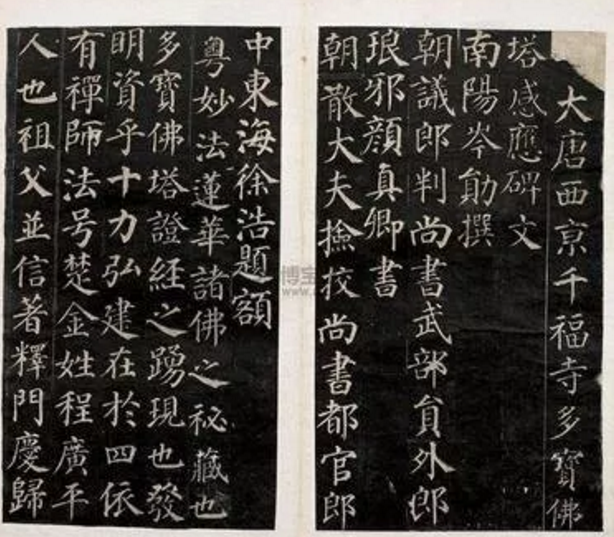 大唐西京千福寺多寶佛
塔感應碑文
南陽岑勛撰
朝議郎判尚書武部員外郎
琅邪顏真卿書
朝散大夫撿挍尚書都官郎
中東海徐浩題額
粵妙法蓮華諸佛之秘藏也
多寶佛塔證經之踴現也發
明資乎十力弘建在於四依
有禪師法号楚金姓程廣平
人也祖父並信著釋門慶歸
博宝